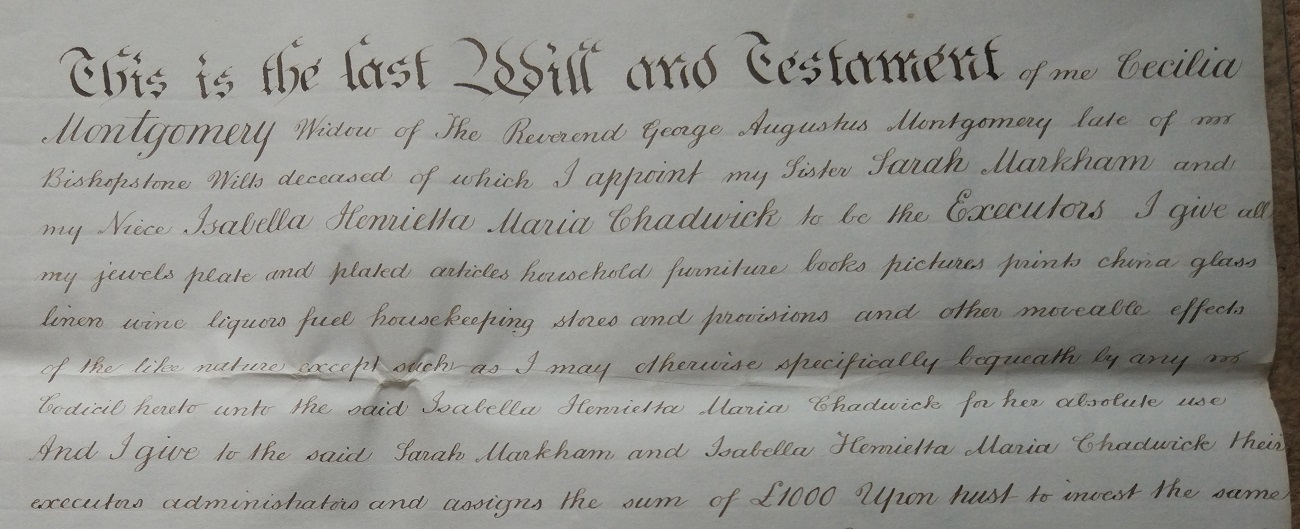 This is the last Will and Testament of me Cecilia
Montgomery Widow of The Reverend George Augustus Montgomery late of
Bishopstone Wilts deceased of which I appoint my Sister Sarah Markham and
my Niece Isabella Henrietta Maria Chadwick to be the Executors I give all
my jewels plate and plated articles household furniture books pictures prints china glass
linen wine liquors fuel housekeeping stores and provisions and other moveable effects
of the like nature except such as I may otherwise specifically bequeath by any
Codicil hereto unto the said Isabella Henrietta Maria Chadwick for her absolute use
And I give to the said Sarah Markham and Isabella Henrietta Maria Chadwick their
executors administrators and assigns the sum of £1000 Upon trust to invest the same